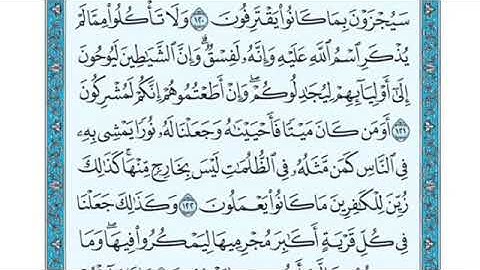 سَيُجۡزَوۡنَ بِمَا كَانُواْ يَقۡتَرِفُونَ ١٢٠ وَلَا تَأۡكُلُواْ مِمَّا لَمۡ
يُذۡكَرِ ٱسۡمُ ٱللَّهِ عَلَيۡهِ وَإِنَّهُۥ لَفِسۡقٞۗ وَإِنَّ ٱلشَّيَٰطِينَ لَيُوحُونَ
إِلَىٰٓ أَوۡلِيَآئِهِمۡ لِيُجَٰدِلُوكُمۡۖ وَإِنۡ أَطَعۡتُمُوهُمۡ إِنَّكُمۡ لَمُشۡرِكُونَ
١٢١ أَوَمَن كَانَ مَيۡتٗا فَأَحۡيَيۡنَٰهُ وَجَعَلۡنَا لَهُۥ نُورٗا يَمۡشِي بِهِۦ
فِي ٱلنَّاسِ كَمَن مَّثَلُهُۥ فِي ٱلظُّلُمَٰتِ لَيۡسَ بِخَارِجٖ مِّنۡهَاۚ كَذَٰلِكَ
زُيِّنَ لِلۡكَٰفِرِينَ مَا كَانُواْ يَعۡمَلُونَ ١٢٢ وَكَذَٰلِكَ جَعَلۡنَا
فِي كُلِّ قَرۡيَةٍ أَكَٰبِرَ مُجۡرِمِيهَا لِيَمۡكُرُواْ فِيهَاۖ وَمَا